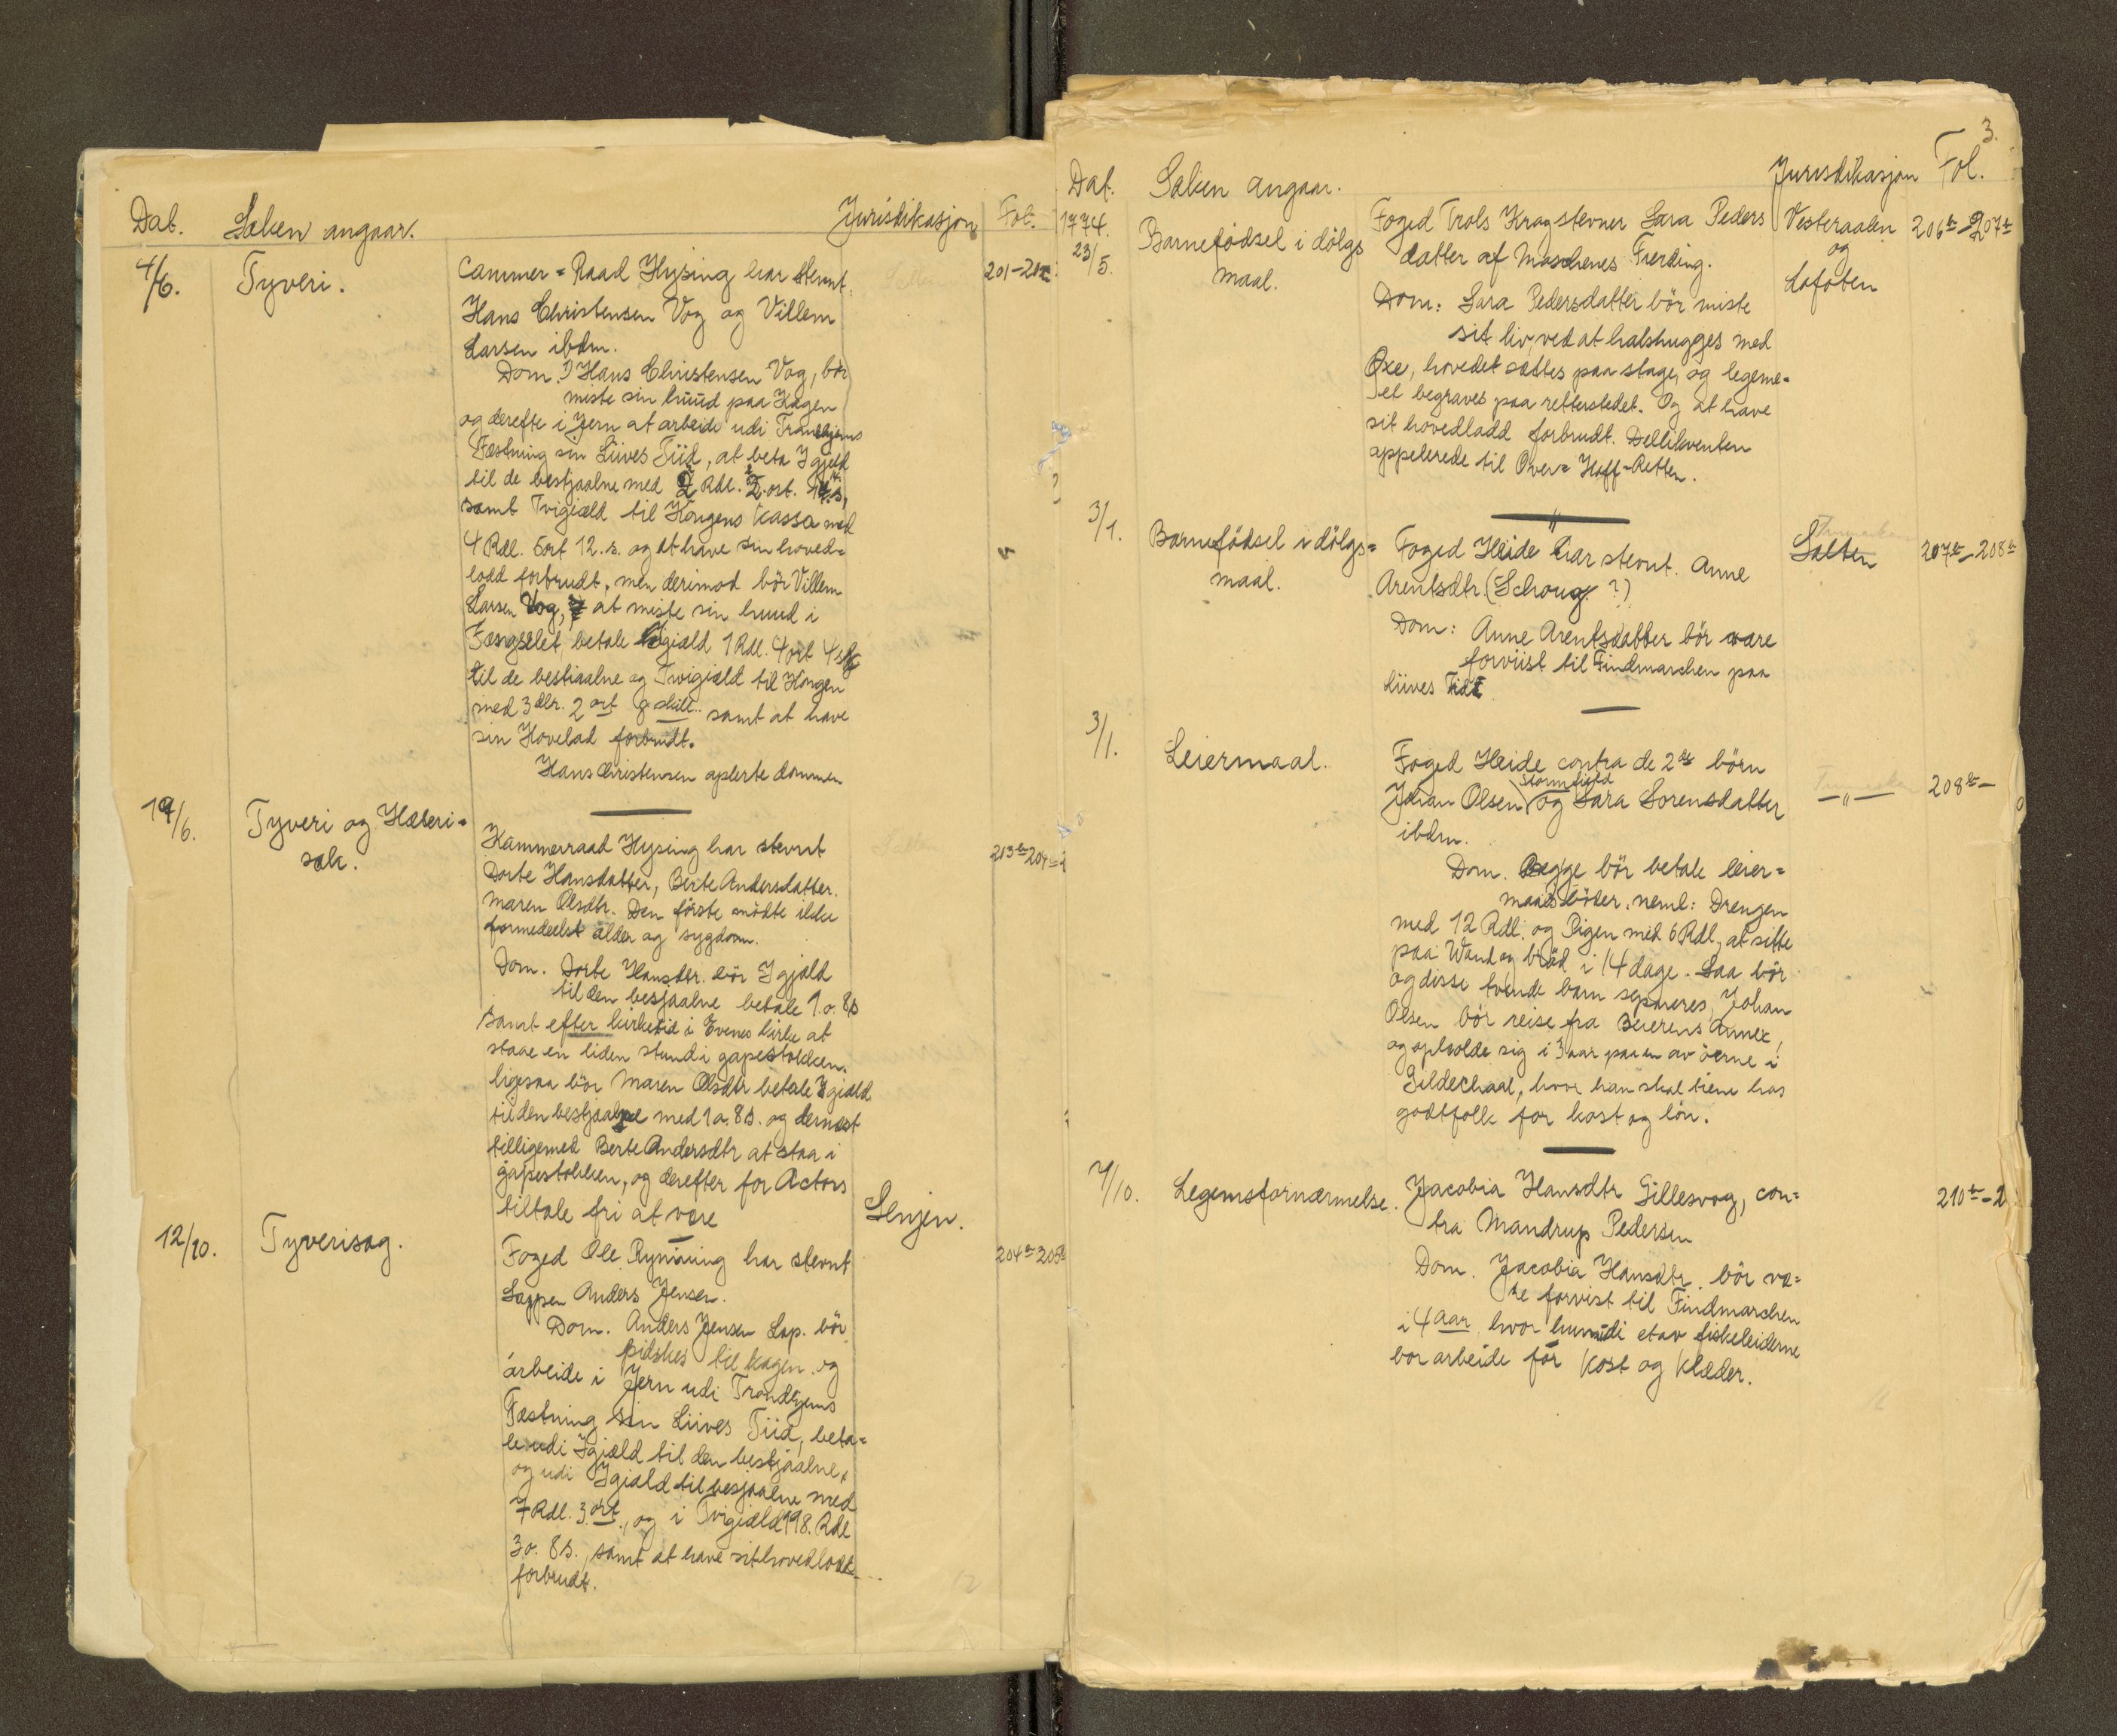 Dat. Saken angaar. Jurisdikasjon Fol.
4/6. Tyveri. Cammer=Raad Hysing har stevnt Salten 201-202
Hans Christensen Vog og Villem
Larsen ibdm.
Dom. Hans Christensen Vog, bör
miste sin huud paa Kagen
og derefte i Jern at arbeide udi Trondhjems
Fæstning sin Liives Tiid, at beta Igjeld
til de bestjaalne med 2 Rdl. 2 ort. 14 s,
samt Tvigiæld til Kongens Kassa med
4 Rdl. 5 ort 12. s. og at have sin hoved=
lodd forbrudt, men derimod bör Villem
Larsen Vog, at miste sin huud i
Fængselet, betale Igiæld 1 Rdl. 4 ort 4 s
til de bestiaalne og Tvigiæld til Kongen
med 3 dlr. 2 ort 8 skill. samt at have
sin Hovelad forbrudt.
Hans Christensen aplerte dommen
14/6. Tyveri og Hæleri=
sak.
Kammerraad Hysing har stevnt Salten 213b-204
Dorte Hansdatter, Berte Andersdatter.
Maren Olsdtr. Den förste mödte ikke
formedelst alder og sygdom.
Dom. Dorte Hansdtr. bör Igjæld
til den besjaalne betale 1. o. 8 s
samt efter kirketid i Evenes kirke at
staae en liden stund i gapestokken.
ligesaa bör Maren Olsdtr betale Igiæld
til den bestjaalne med 1 o. 8 s. og dernæst
tilligemed Berte Andersdtr at staa i
gapestokken, og derefter for Actors
tiltale fri at være
12/10. Tyverisag. Senjen.
Foged Ole Rynning har stevnt 204b-205b
Lappen Anders Jensen.
Dom. Anders Jensen Lap. bör
pidskes til kagen og
arbeide i Jern udi Trondhjems
Fæstning sin Liives Tiid, beta=
le udi Igjæld til den bestjaalne,
og udi Igiæld til besjaalne med
7 Rdl. 3 ort., og i Tvigiæld 198. Rdl
3 o. 8 s., samt at have sit hovedlodd
forbrudt.
3.
Dat. Saken angaar. Jurisdikasjon Fol.
1774.
23/5. Barnefödsel i dölgs
maal.
Foged Trols Krag stevner Sara Peders Vesteraalen 206b-207b
datter af Maschenes Fierding. og
Lofoten
Dom: Sara Pedersdatter bör miste
sit liv, ved at halshugges med
Öxe, hovedet sættes paa stage, og legeme=
el begraves paa rettersledet. Og at have
sit hovedladd forbrudt. Dellikventen
appelerede til Over=Hoff-Retten.
3/1. Barnefödsel i dölgs=
maal.
Foged Heide har stevnt. Anne Salten 207b-208b
Arentsdtr. (Schoug ?)
Dom: Anne Arentsdatter bör være
forviist til Findmarchen paa
Liives Tid
3/1. Leiermaal. Foged Heide contra de 2de börn
Johan Olsen Stormfield og Sara Sorensdatter —"— 208b-
ibdm.
Dom. Begge bör betale leier=
maalsböder. neml: Drengen
med 12 Rdl. og Pigen med 6 Rdl, at sitte
paa Wand og bröd i 14 dage. Saa bör
og disse tvende barn separeres, Johan
Olsen bör reise fra Beierens Annex,
og opholde sig i 3 aar paa en av öerne i
Gildeschaal, hvor han skal tiene hos
godtfolk for kost og lön.
4/10. Legemsfornærmelse. Jacobia Hansdtr Gillesvog, con= 210b-2
tra Mandrup Pedersen
Dom. Jacobia Hansdtr. bör væ=
re forvist til Findmarchen
i 4 aar hvor hun udi et av fiskeleiderne
bor arbeide for Kost og Klæder.